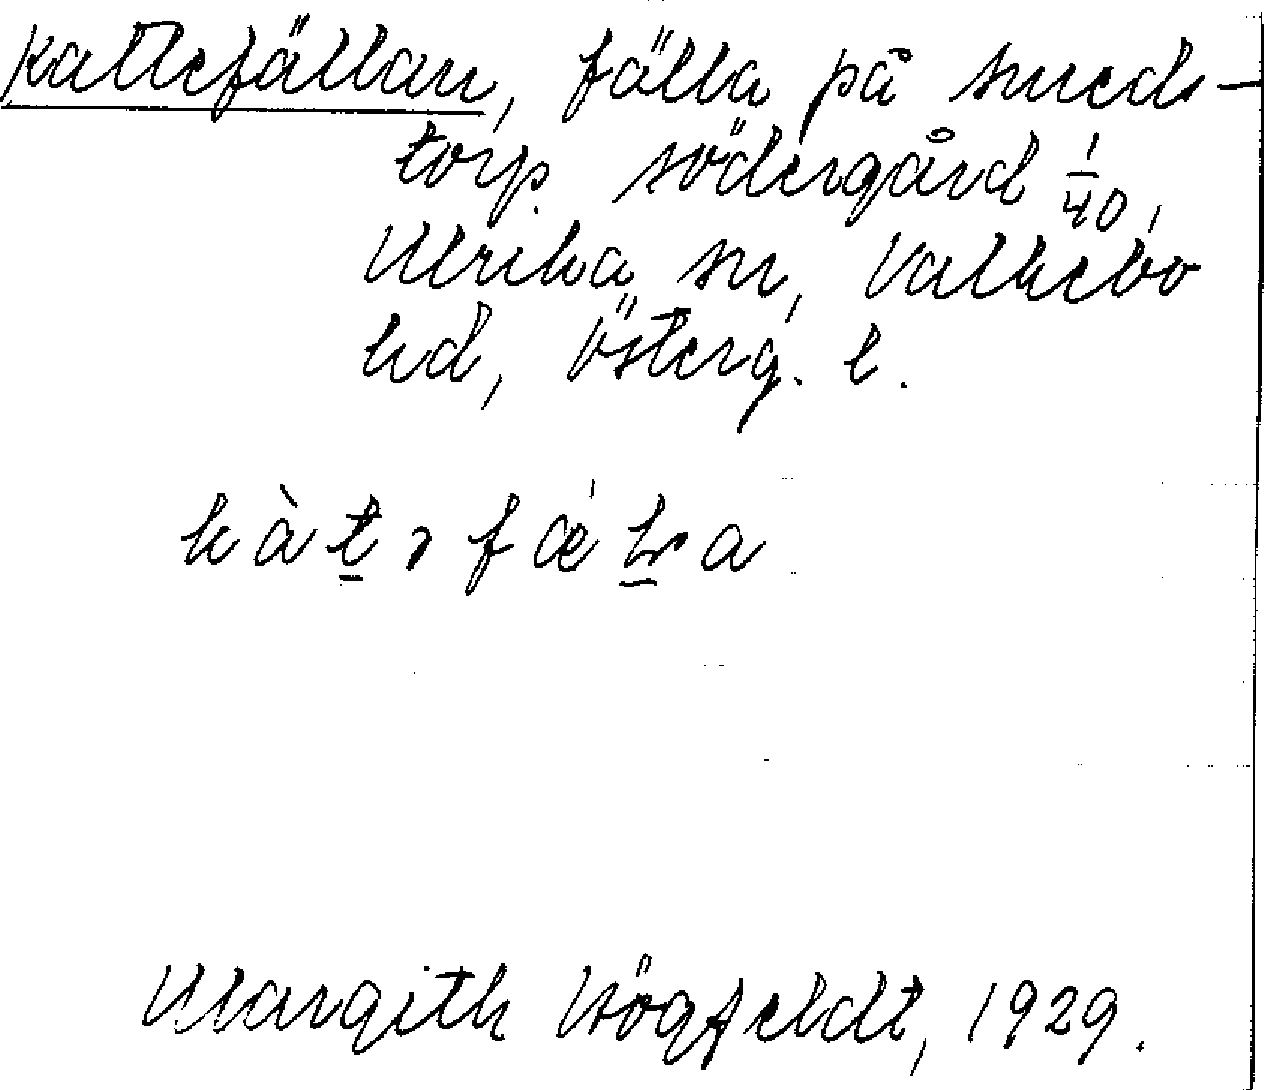 Kattefällan, fälla på Smeds-
torp södergård 1/40,
Ulrika sn, Valkebo
hd, Österg. l.
kàtəfǽlla
Margith Högfeldt, 1929.